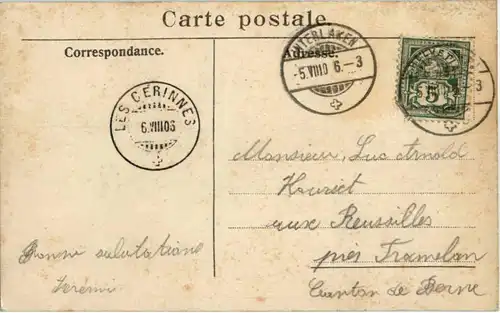 Carte postale.
Correspondance.
Adresse.
INTERLAKEN
-5.VIII.0 6.-3
5
LES CERINNES
6.VIII 06
Monsieur, Luc Arnold
aux Reussilles
près Tramelan
Canton de Berne